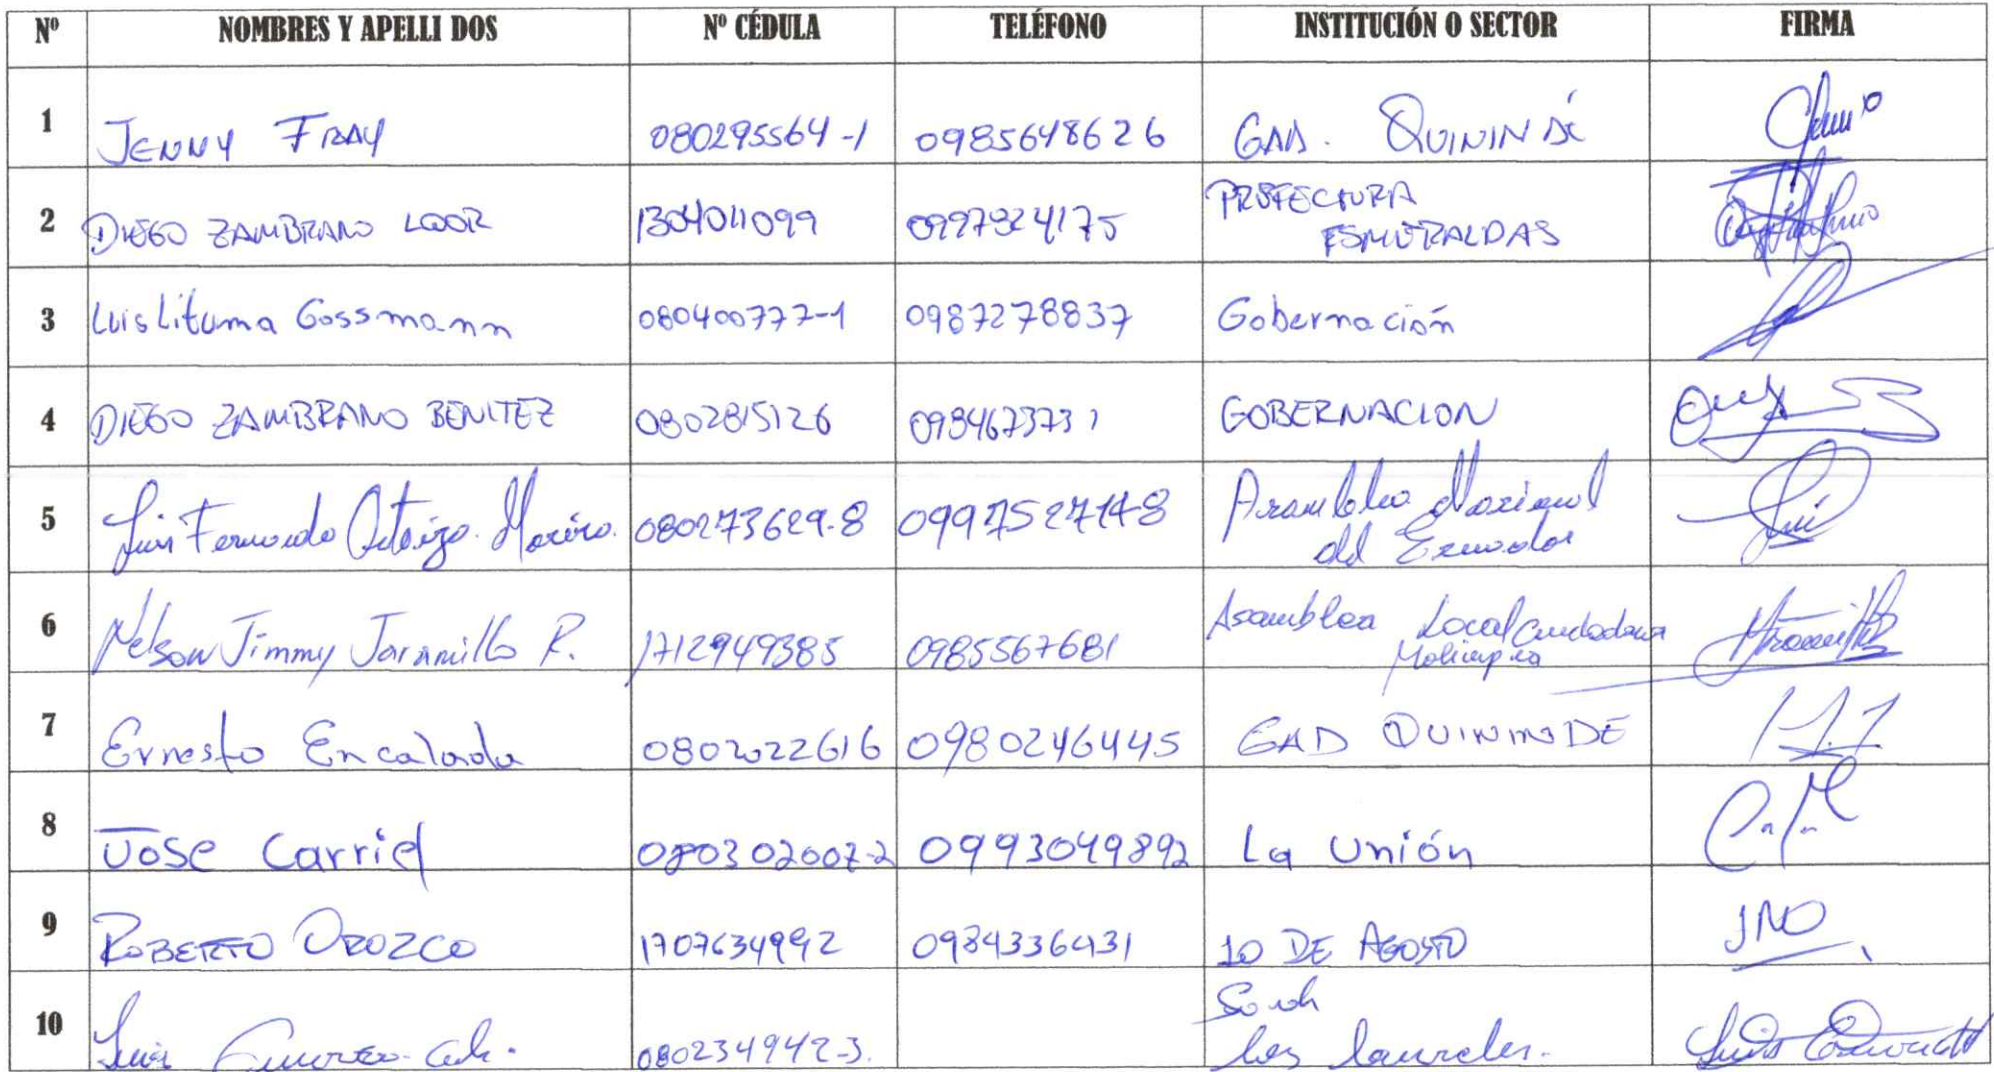 Nº NOMBRES Y APELLI DOS Nº CÉDULA TELÉFONO INSTITUCIÓN O SECTOR FIRMA
1 JENNY FRAY 080295564-1 0985648626 GAD. QUININDÉ
2 DIEGO ZAMBRANO LOOR 1304011099 0997924175 PREFECTURA
ESMERALDAS
3 Luis Lituma Gossmann 080400777-1 0987278837 Gobernación
4 DIEGO ZAMBRANO BENITEZ 0802815126 0984673731 GOBERNACION
5 Luis Fernando 080273629-8 0997527148 Asamblea Nacional
del Ecuador
6 Nelson Jimmy Jaramillo R. 1712949385 0985567681 Asamblea Local Ciudadana
Malimpia
7 Ernesto Encalada 0802022616 0980246445 GAD QUININDE
8 Jose Carriel 080302007-2 0993049892 La Unión
9 ROBERTO OROZCO 1707634992 0984336431 10 DE AGOSTO JNO
10 Luis 080234942-3. los laureles.